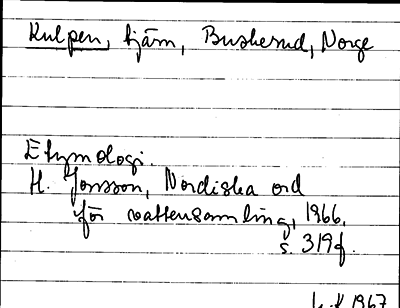 Kulpen, tjärn, Buskerud, Norge
Etymologi.
H. Jonsson, Nordiska ord
för vattensamling, 1966,
s. 319f.
1967